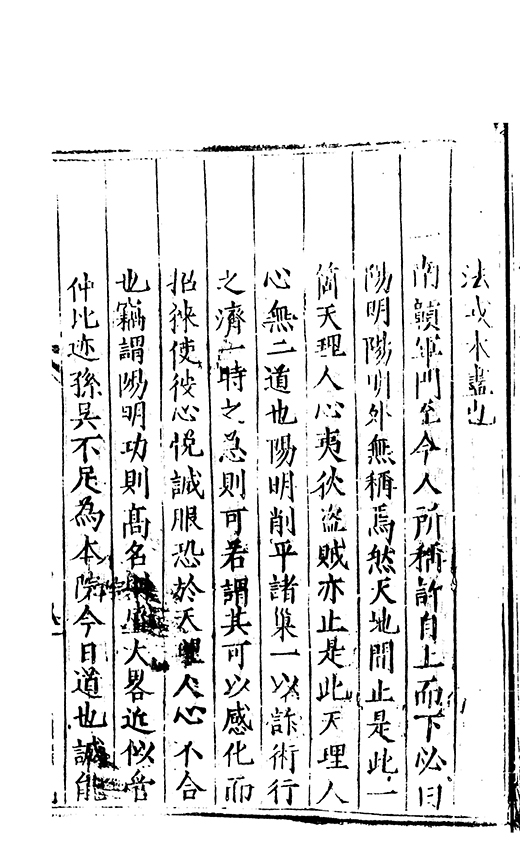 法或未盡也
一南贛軍門至今人所稱許自上而下必曰
陽明陽明外無稱焉然天地間止是此一
箇天理人心夷狄盜賊亦止是此天理人
心無二道也陽明削平諸巢一以詐術行
之濟一時之急則可若謂其可以感化而
招徠使彼心悅誠服恐於天理人心不合
也竊謂陽明功則高名則盛大畧近似管
仲比迹孫吳不足為本院今日道也誠能